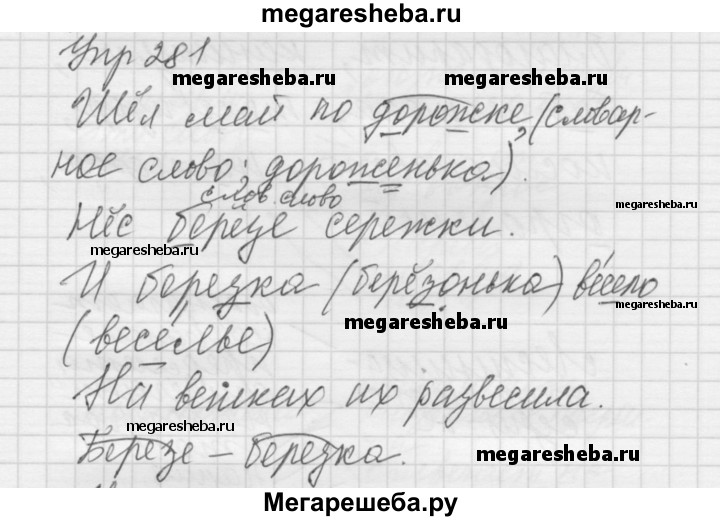 megaresheba.ru
Упр 281
megaresheba.ru
megaresheba.ru
Шёл май по дорожке, (словар-
ное слово; дороженька).
слов. слово
Нёс берёзе сережки.
megaresheba.ru
megaresheba.ru
И березка (берёзонька) весело
megaresheba.ru
(веселье)
На ветках их развесила.
megaresheba.ru
Березе – березка.
megaresheba.ru
Мегарешеба.ру